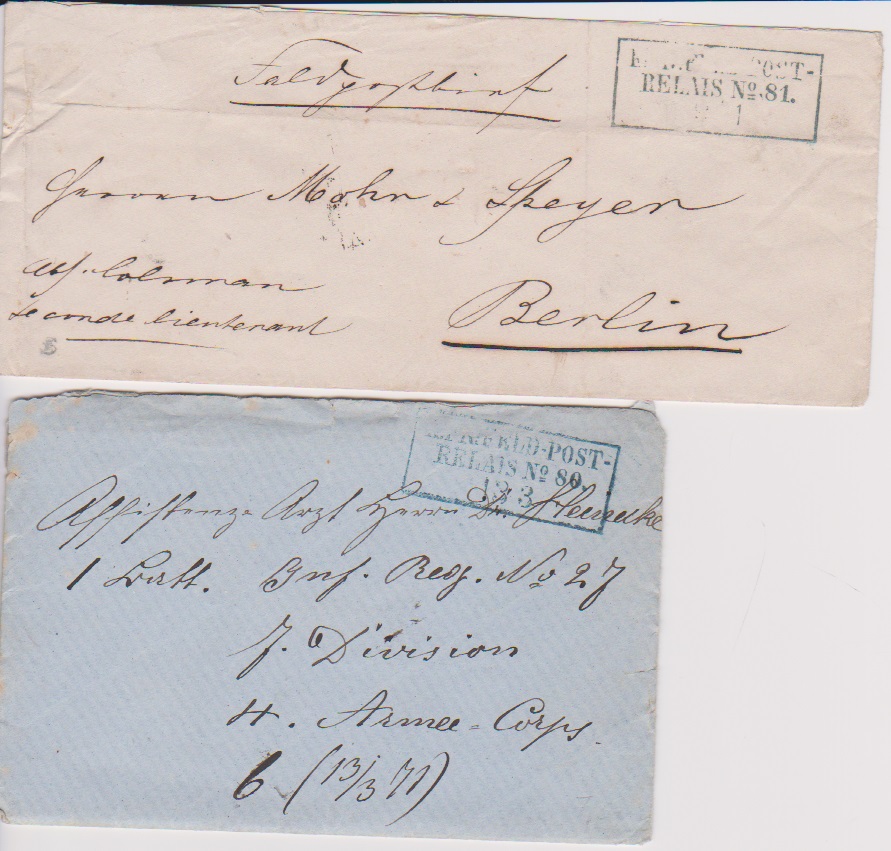 Feldpostbrief
K. PR. FELD-POST-
RELAIS No 81.
1
Herren Mohr & Speyer
Abs. Colsman
Seconde Lieutenant
Berlin
K. PR. FELD-POST-
RELAIS No 80.
13 3
Assistenz-Arzt Herrn Dr. Steinicke
1 Batt. Inf. Reg. No 27
7. Division
4. Armee-Corps.
6 (13/3 71)